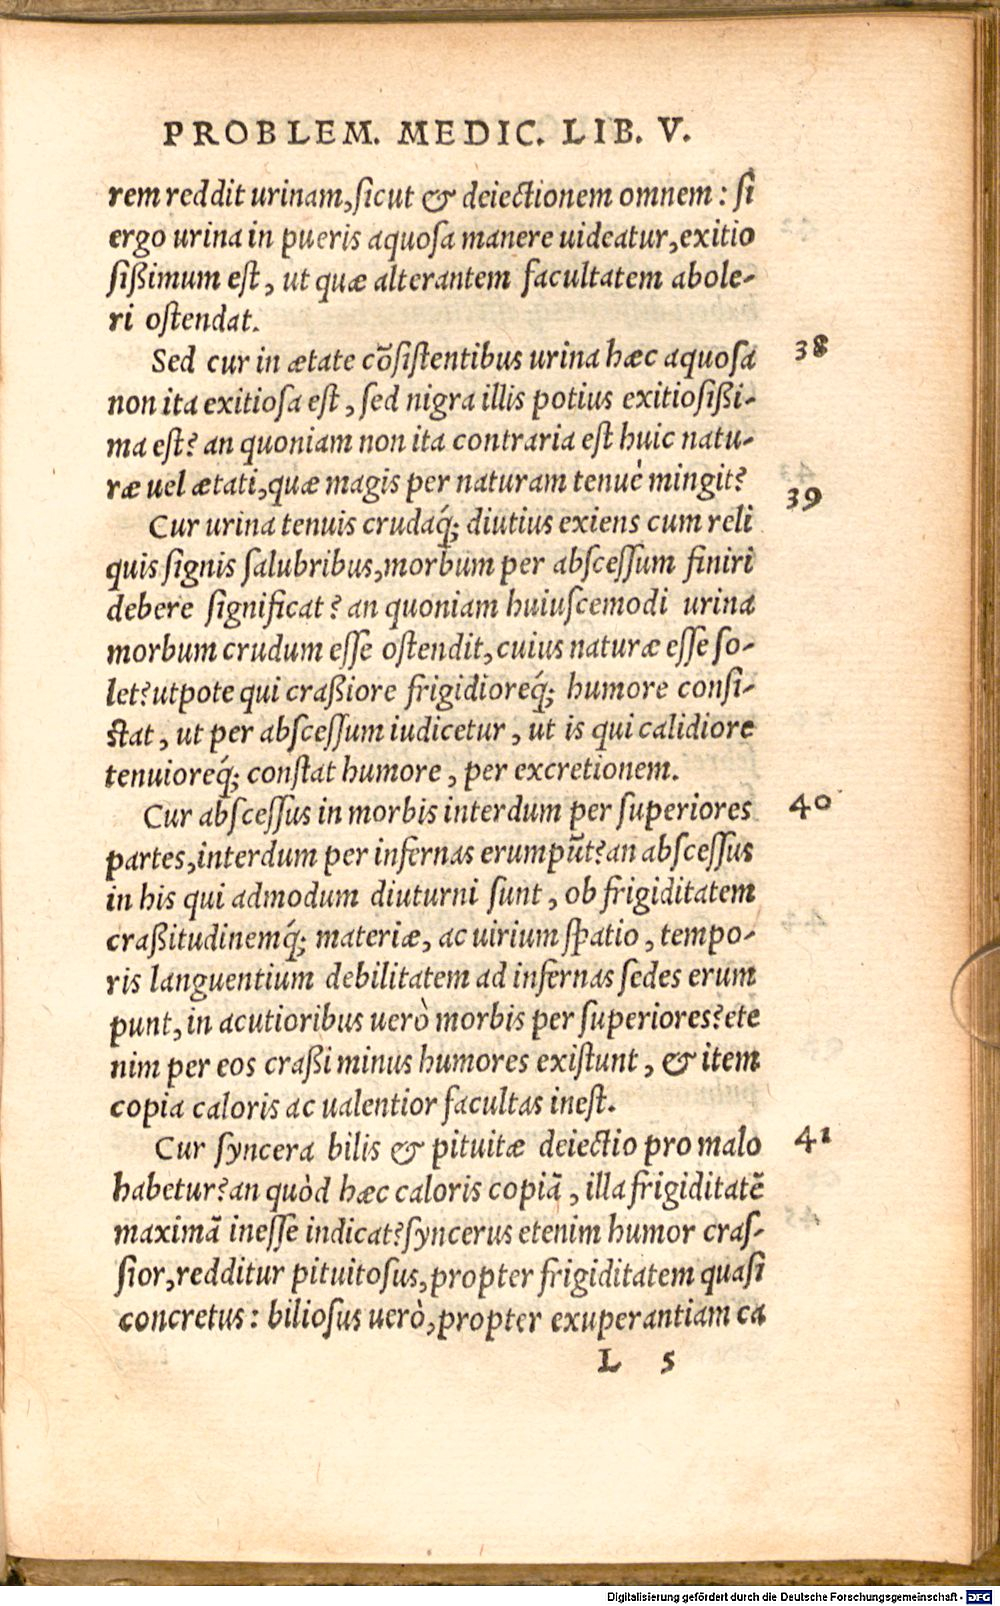 PROBLEM. MEDIC. LIB. V.
rem reddit urinam, ſicut & deiectionem omnem : ſi
ergo urina in pueris aquoſa manere uideatur, exitio
ſißimum eſt, ut quæ alterantem facultatem abole-
ri oſtendat.
Sed cur in ætate cõſiſtentibus urina hæc aquoſa 38
non ita exitioſa eſt, ſed nigra illis potius exitioſißi-
ma eſt? an quoniam non ita contraria eſt huic natu-
ræ uel ætati, quæ magis per naturam tenuè mingit?
Cur urina tenuis crudaq́; diutius exiens cum reli 39
quis ſignis ſalubribus, morbum per abſceſſum finiri
debere ſignificat? an quoniam huiuſcemodi urina
morbum crudum eſſe oſtendit, cuius naturæ eſſe ſo-
let? utpote qui craßiore frigidioreq́; humore conſi-
ſtat, ut per abſceſſum iudicetur, ut is qui calidiore
tenuioreq́; conſtat humore, per excretionem.
Cur abſceſſus in morbis interdum per ſuperiores 40
partes, interdum per infernas erumpũt? an abſceſſus
in his qui admodum diuturni ſunt, ob frigiditatem
craßitudinemq́; materiæ, ac uirium ſpatio, tempo-
ris languentium debilitatem ad infernas ſedes erum
punt, in acutioribus uerò morbis per ſuperiores? ete
nim per eos craßi minus humores exiſtunt, & item
copia caloris ac ualentior facultas ineſt.
Cur ſyncera bilis & pituitæ deiectio pro malo 41
habetur? an quòd hæc caloris copiã, illa frigiditatẽ
maximã ineſſe indicat? ſyncerus etenim humor craſ-
ſior, redditur pituitoſus, propter frigiditatem quaſi
concretus : bilioſus uerò, propter exuperantiam ca
L 5
Digitalisierung gefördert durch die Deutsche Forschungsgemeinschaft - DFG